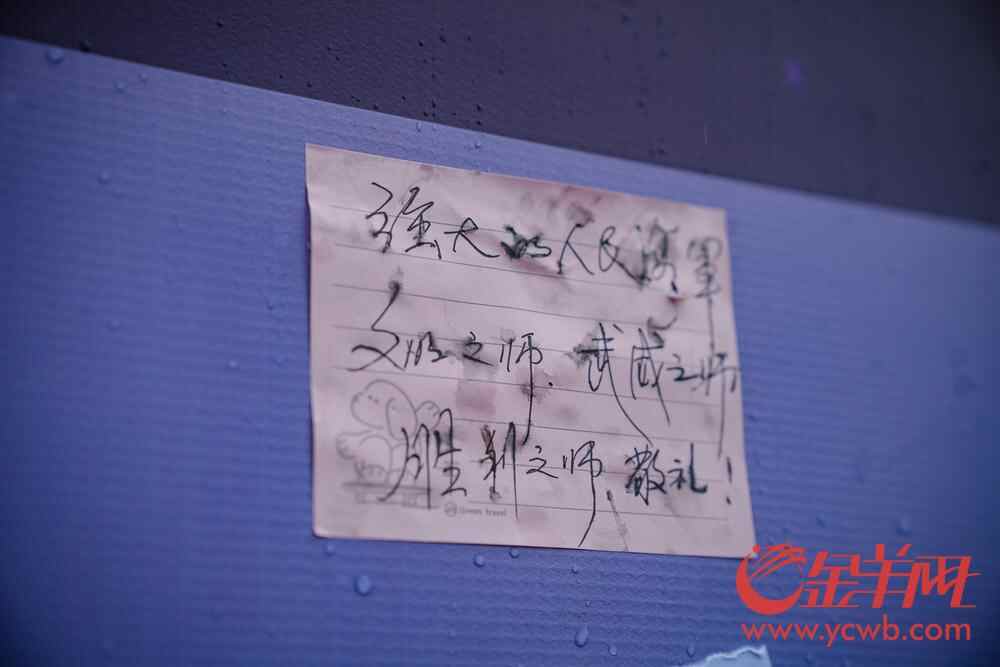 强大的人民海军
文明之师. 武威之师
胜利之师. 敬礼!
Green travel
金羊网
www.ycwb.com